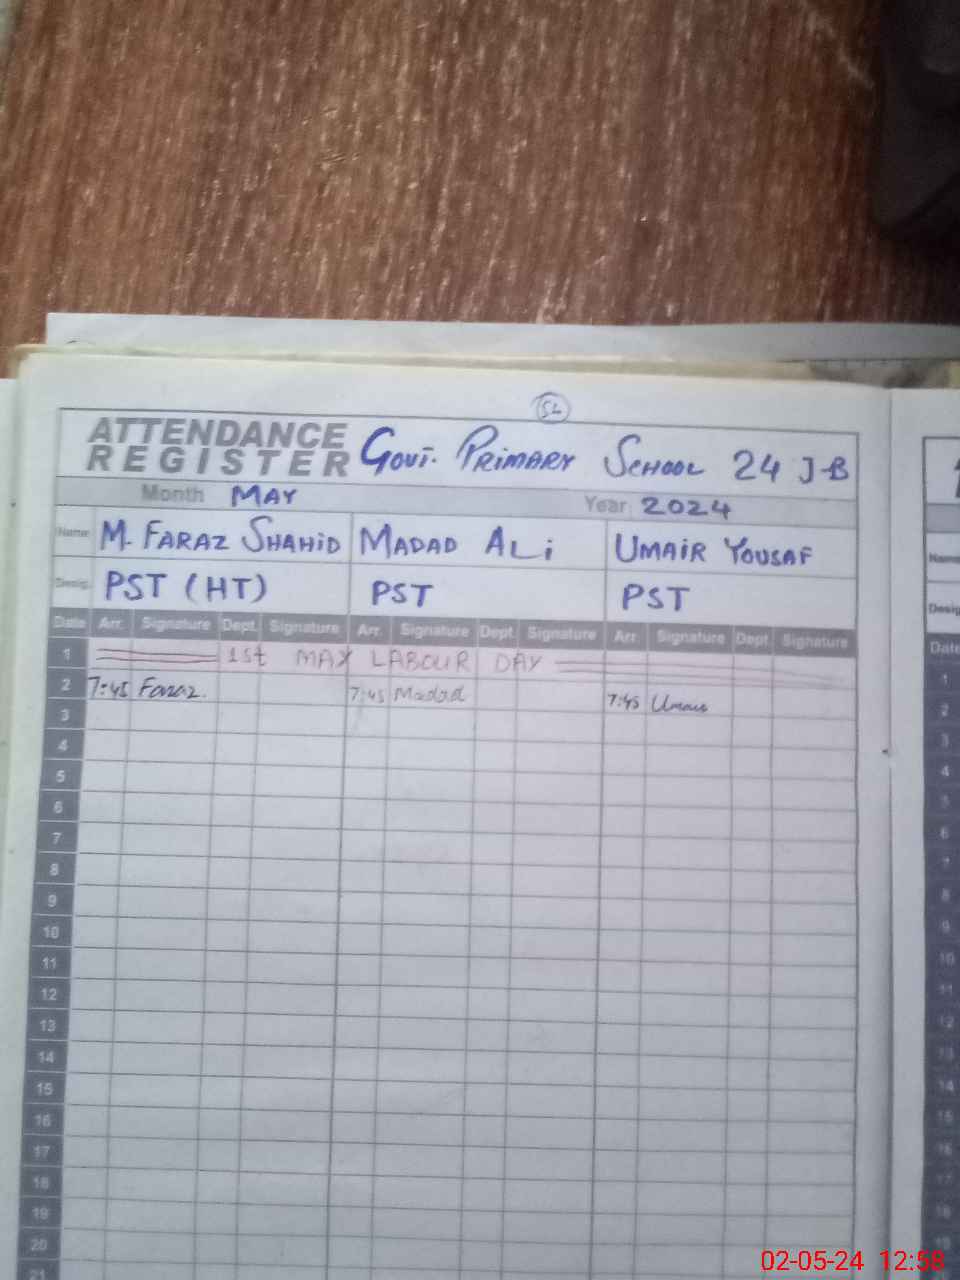 54
ATTENDANCE REGISTER Govt. PRIMARY SCHOOL 24 J-B
Month MAY Year 2024
Name M. FARAZ SHAHID MADAD ALi UMAIR YOUSAF Name
Desig. PST (HT) PST PST Desig
Date Arr. Signature Dept. Signature Arr. Signature Dept. Signature Arr. Signature Dept. Signature Date
1 1st MAY LABOUR DAY 1
2 7:45 Faraz. 7:45 Madad 7:45 Umair 2
3 3
4 4
5 5
6 6
7 7
8 8
9 9
10 10
11 11
12 12
13 13
14 14
15 15
16 16
17 17
18 18
19 19
20 20
21
02-05-24 12:58